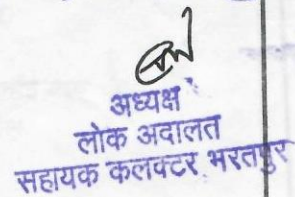 अध्यक्ष
लोक अदालत
सहायक कलक्टर, भरतपुर